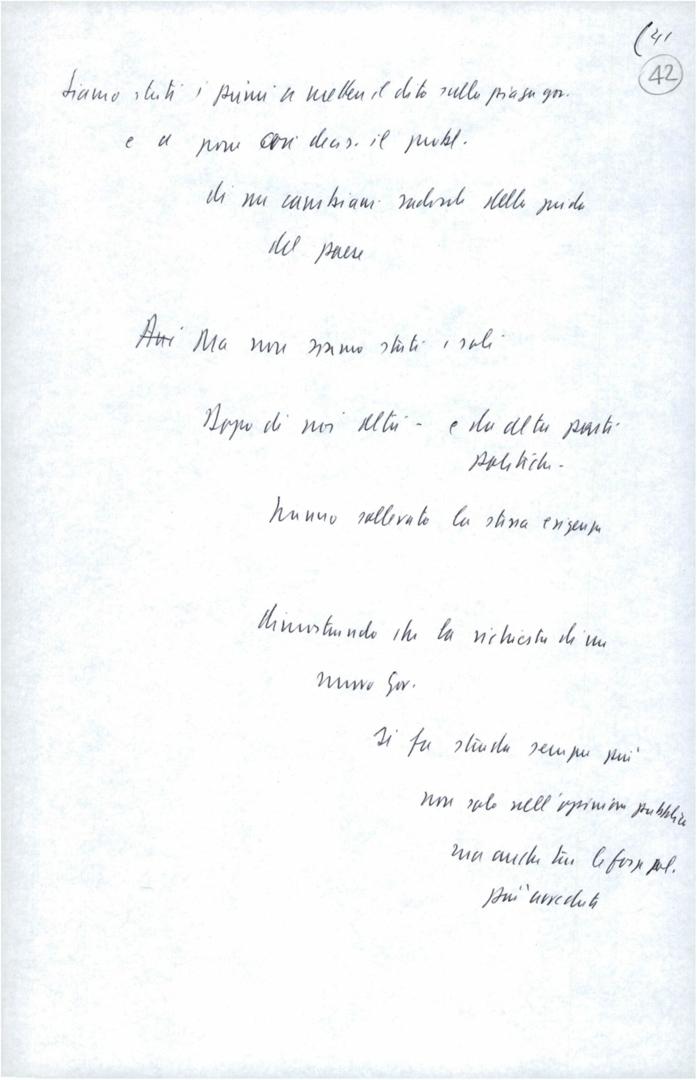 (41
42
Siamo stati i primi a mettere il dito sulla piaga gov.
e a porre così decis. il probl.
di un cambiam. radicale della guida
del paese
Ma non siamo stati i soli
Dopo di noi altri - e da altre parti
politiche -
hanno sollevato la stessa esigenza
dimostrando che la richiesta di un
nuovo gov.
si fa strada sempre più
non solo nell'opinione pubblica
ma anche tra le forze pol.
più avvedute